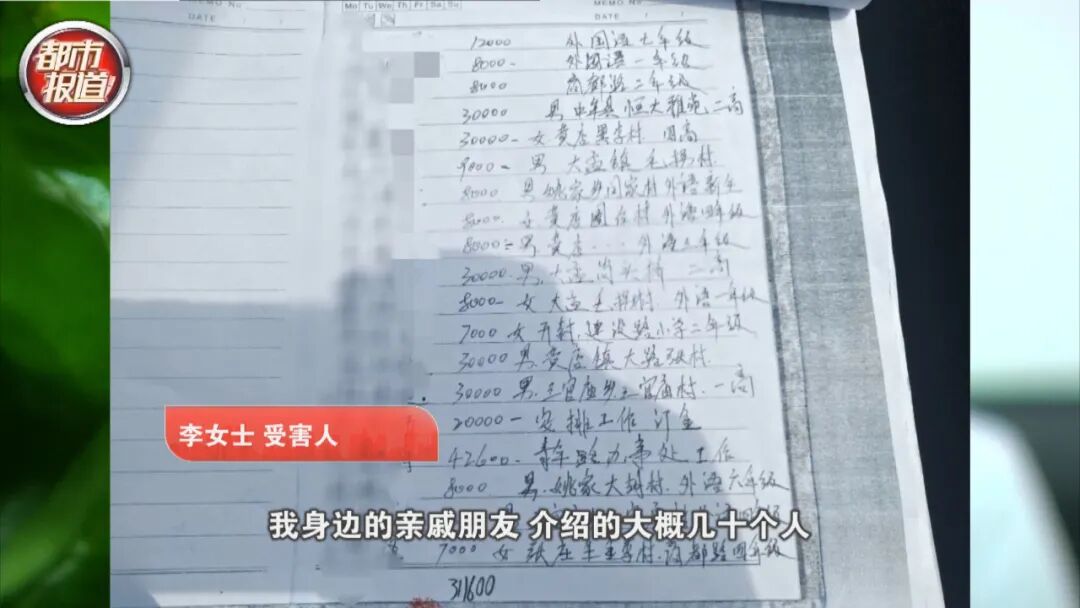 都市
报道
Mo Tu We Th Fr Sa Su
MEMO No
DATE / /
MEMO No
DATE / /
12000 外国语七年级
8000- 外国语一年级
8000 商都路二年级
30000 男 中牟县恒大雅苑 二高
30000- 女 黄店 李村 四高
9800- 男 大孟镇 毛拐村
8000 男 姚家乡 家村 外语新生
8000- 女 黄店 村 外语四年级
8000- 男 黄店 ... 外语 年级
30000- 男 大孟 岗头桥 二高
8000- 女 大孟毛拐村 外语一年级
7000 女 开封 建设路小学二年级
30000 男 黄店镇大路 村
30000 男 三官庙乡三官庙村 一高
20000- 安排工作 订金
42600- 青年路办事处工作
8000 男 姚家大胡村 外语六年级
7000 女 李村 商都路四年级
311600
李女士 受害人
我身边的亲戚朋友 介绍的大概几十个人